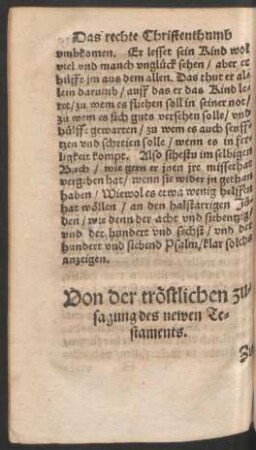 Das rechte Christenthumb
vmbkomen. Er lesset sein Kind wol
viel vnd manch vnglück sehen / aber er
hilfft jm aus dem allen. Das thut er al-
lein darumb / auff das er das Kind le-
ret / zu wem es fliehen soll in seiner not /
zu wem es sich guts versehen solle / vnd
hülffe gewarten / zu wem es auch seuff-
tzen vnd schreien solle / wenn es in fer-
ligkeit kompt. Also sihestu im selbigen
Buch / wie gern er jnen jre missethat
vergeben hat / wenn sie wider jn gethan
haben / Wiewol es etwa wenig helffen
hat wöllen / an den halstarrigen Jü-
den / wie denn der acht vnd siebentzig /
vnd der hundert vnd sechst / vnd der
hundert vnd siebend Psalm / klar solchs
anzeigen.
Von der tröstlichen zu-
sagung des newen Te-
staments.